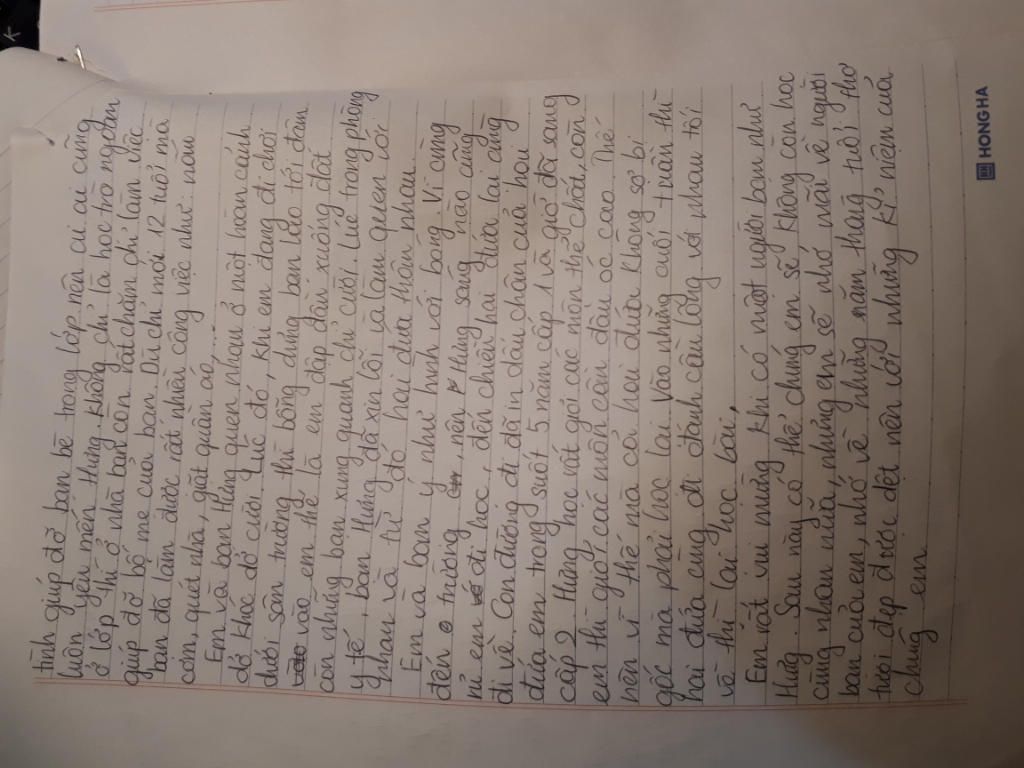 tình giúp đỡ bạn bè trong lớp nên ai ai cũng
luôn yêu mến Hưng. Không chỉ là học trò ngoan
ở lớp thì ở nhà bạn còn rất chăm chỉ làm việc
giúp đỡ bố mẹ của bạn. Dù chỉ mới 12 tuổi mà
bạn đã làm được rất nhiều công việc như: nấu
cơm, quét nhà, giặt quần áo,...
Em và bạn Hưng quen nhau ở một hoàn cảnh
dở khóc dở cười. Lúc đó, khi em đang đi chơi
dưới sân trường thì bỗng dưng bạn lao tới đâm
vào em thế là em đập đầu xuống đất
còn những bạn xung quanh chỉ cười. Lúc trong phòng
y tế, bạn Hưng đã xin lỗi và làm quen với
nhau và từ đó hai đứa thân nhau.
Em và bạn ý như hình với bóng. Vì cùng
đến trường, nên Hưng sáng nào cũng
rủ em đi học, đến chiều hai đứa lại cùng
đi về. Con đường đi đã in dấu chân của hai
đứa em trong suốt 5 năm cấp 1 và giờ đã sang
cấp 2. Hưng học rất giỏi các môn thể chất, còn
em thì giỏi các môn cần đầu óc cao. Thế
nên vì thế mà cả hai đứa không sợ bị
gốc mà phải học lại. Vào những cuối tuần thì
hai đứa cùng đi đánh cầu lông với nhau tối
về thì lại học bài.
Em rất vui mừng khi có một người bạn như
Hưng. Sau này có thể chúng em sẽ không còn học
cùng nhau nữa, nhưng em sẽ nhớ mãi về người
bạn của em, nhớ về những năm tháng tuổi thơ
tươi đẹp được dệt nên với những kỉ niệm của
chúng em.
HONG HA